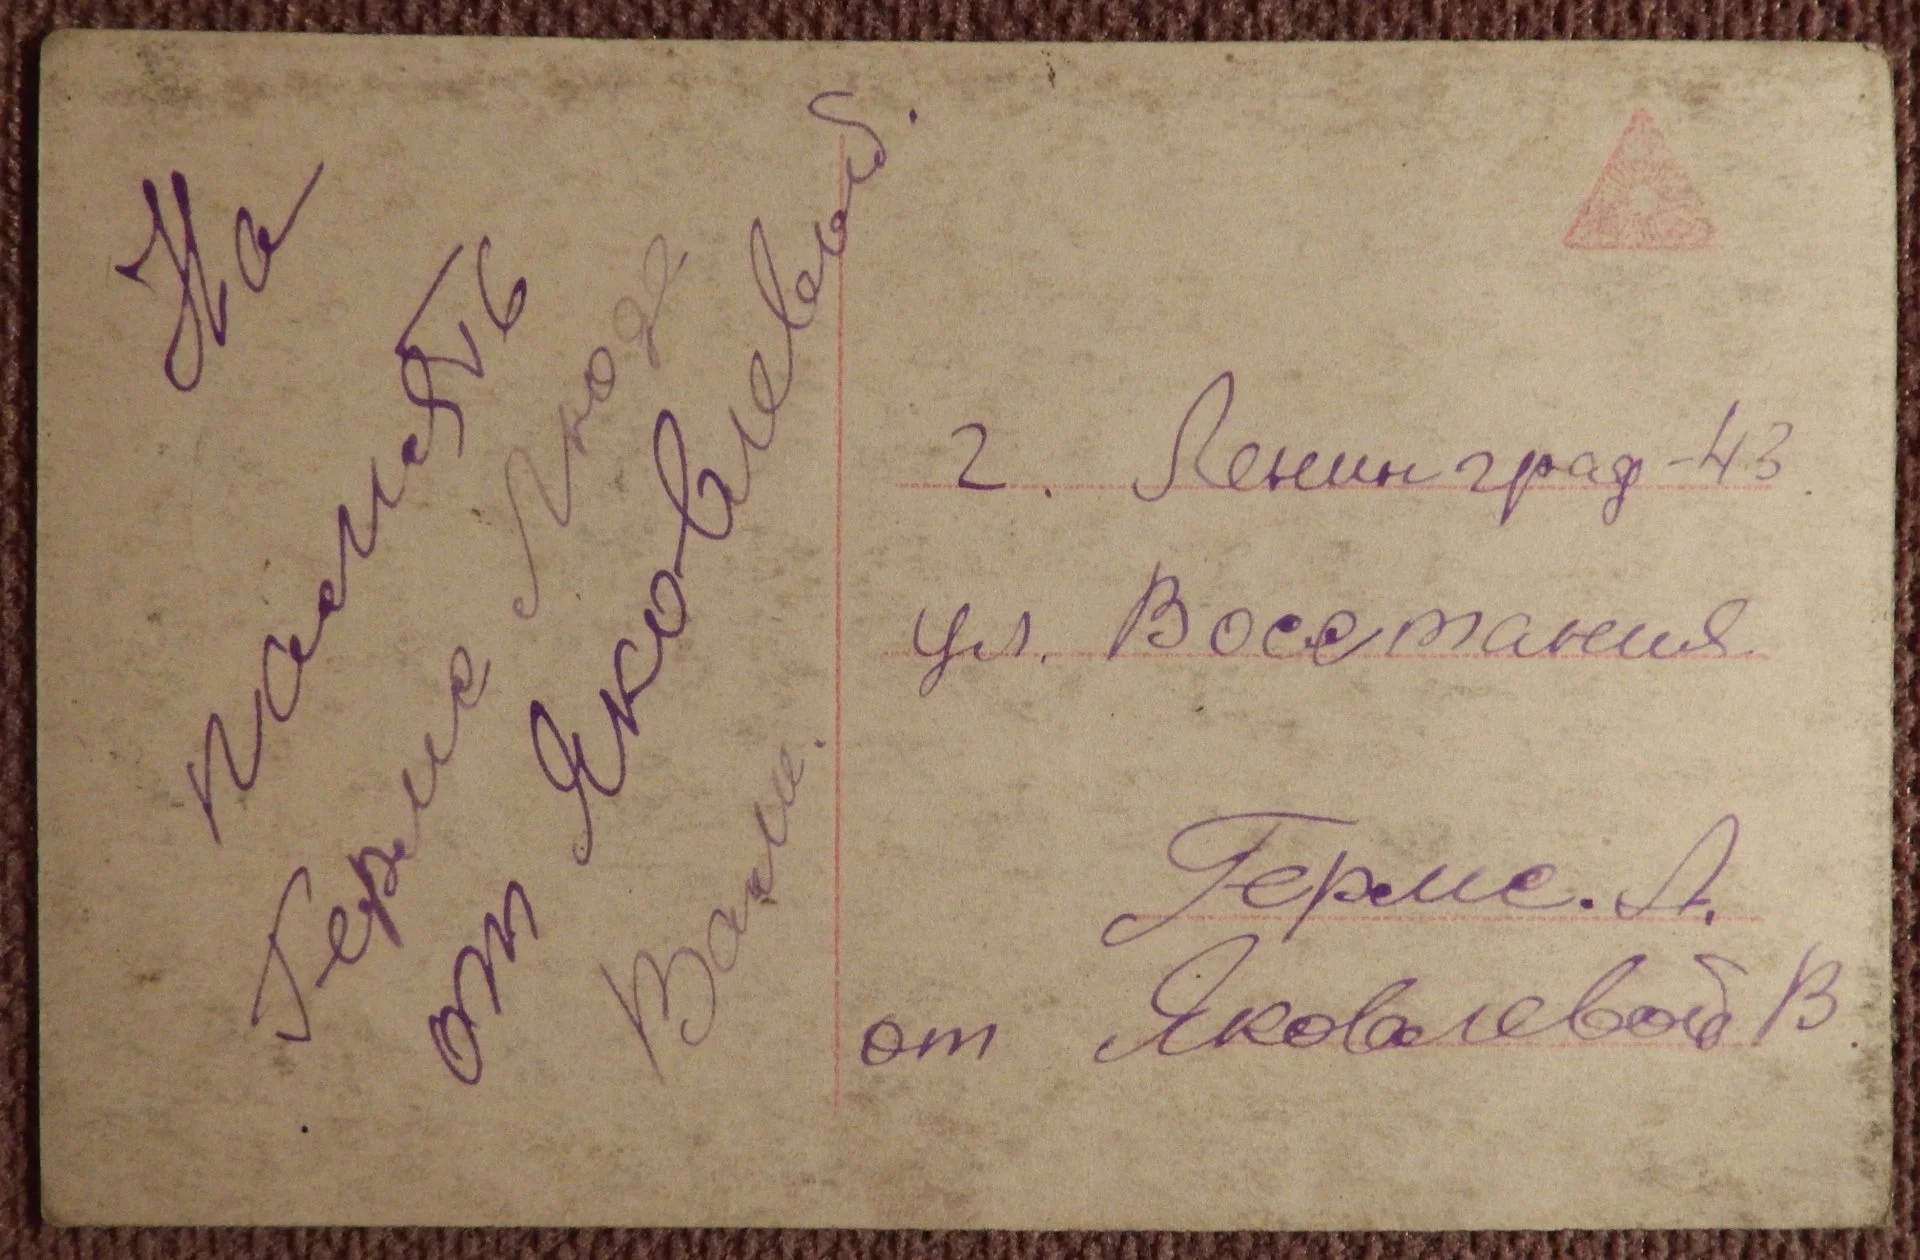 На
память
Герме Люде
от Яковлевой.
Вали.
г. Ленинград-43.
ул. Восстания.
Герме. Л.
от Яковлевой В.